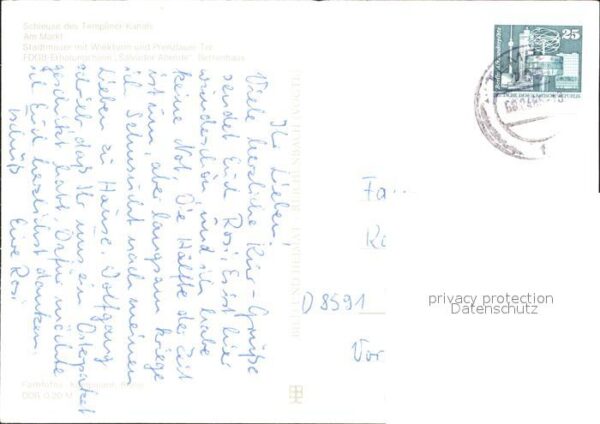 Schleuse des Templiner Kanals
Am Markt
Stadtmauer mit Wiekturm und Prenzlauer Tor
FDGB-Erholungsheim "Salvador Allende", Bettenhaus
Ihr Lieben!
Viele herzliche Kur-Grüße
sendet Euch Rosi. Es ist hier
wunderschön und ich habe
keine Not. Die Hälfte der Zeit
ist um, aber langsam kriege
ich Sehnsucht nach meinen
Lieben zu Hause. Wolfgang
schrieb, daß Ihr uns ein Osterpaket
geschickt habt. Dafür möchte
ich Euch herzlichst danken.
Tschüß Eure Rosi
DDR 0,20 M
25
Fa
D 8591
Vor
privacy protection
Datenschutz